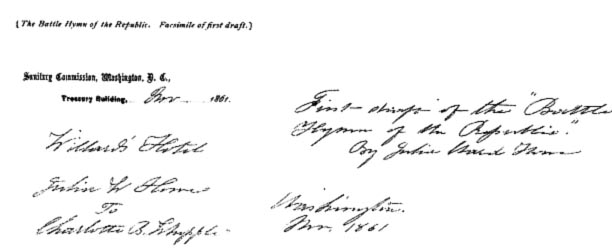 [The Battle Hymn of the Republic. Facsimile of first draft.]
Sanitary Commission, Washington, D. C.,
Treasury Building, Nov 1861.
Willards Hotel
Julia W Howe
To
Charlotte B. Whipple.
First draft of the "Battle
Hymn of the Republic."
By Julia Ward Howe
Washington.
Nov. 1861